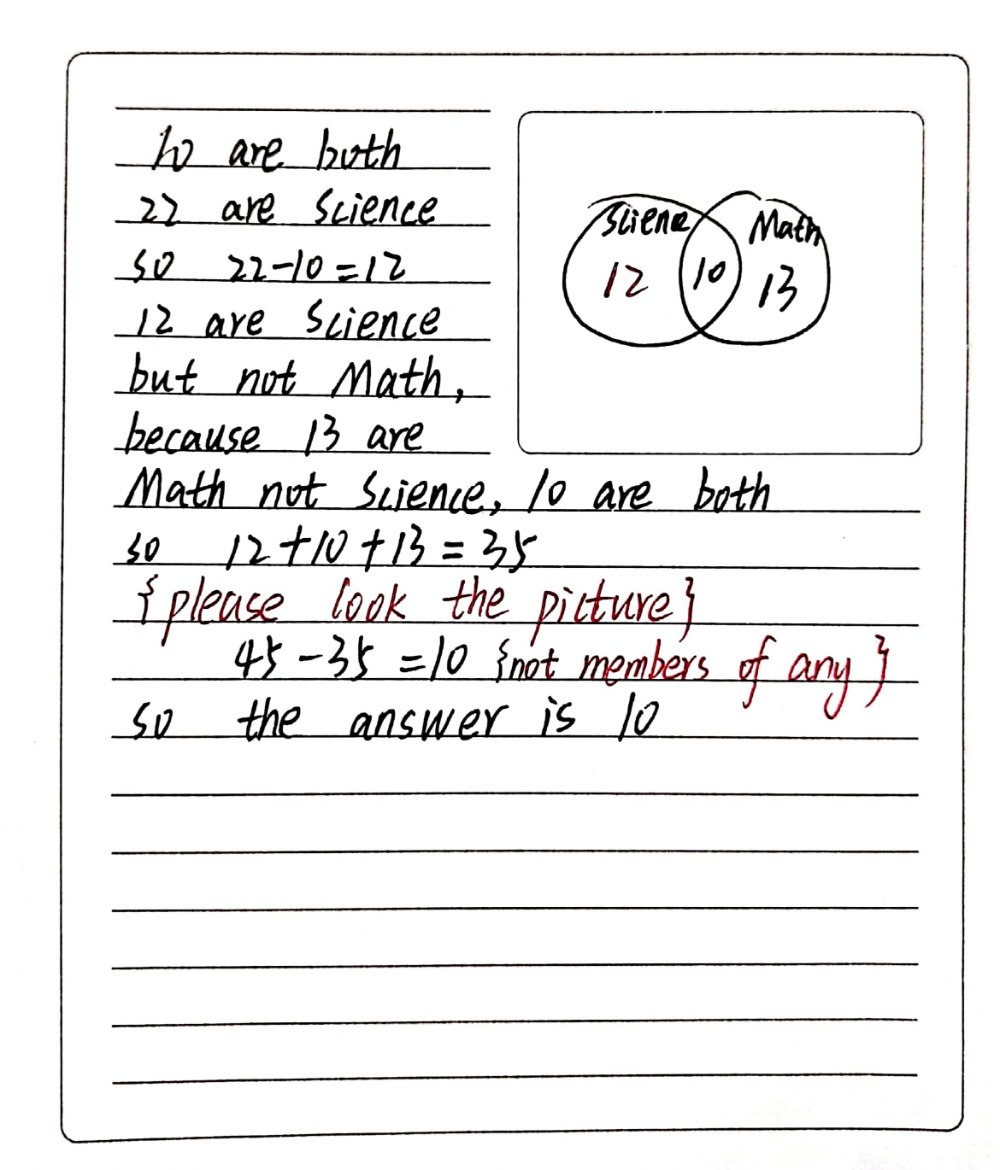 10 are both
22 are Science
so 22-10=12
12 are Science
but not Math,
because 13 are
Math not Science, 10 are both
so 12+10+13=35
{please look the picture}
45-35=10 {not members of any}
so the answer is 10
Scienc Math
12 10 13